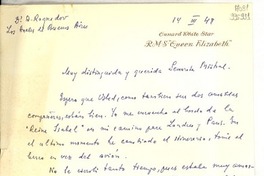 Dr. A. Roquedor
Los Andes el Buenos Aires
14 III 49
Cunard White Star
R.M.S. "Queen Elizabeth"
Muy distinguida y querida Señorita Mistral.
Espero que Usted, como también sus dos amables
compañeras, están bien. Yo me encuentro al bordo de la
"Reina Isabel" en mi camino para Londres y Paris. En
el ultimo momento he cambiado el itinerario. tomé el
barco en vez del avión.
No le escribí tanto tiempo, pues estaba muy